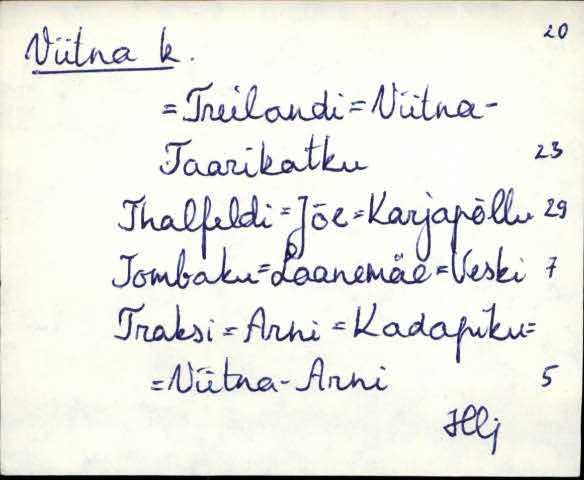 20
Viitna k.
=Treilandi=Viitna-
Taarikatku 23
Thalfeldi=Jõe=Karjapõllu 29
Tombaku=Laanemäe=Veski 7
Traksi=Arni=Kadapiku=
=Viitna-Arni 5
Hlj